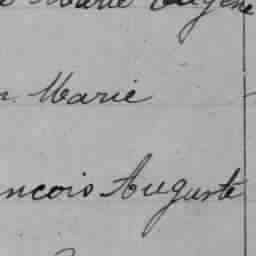 Marie Eugène
Marie
ncois Auguste